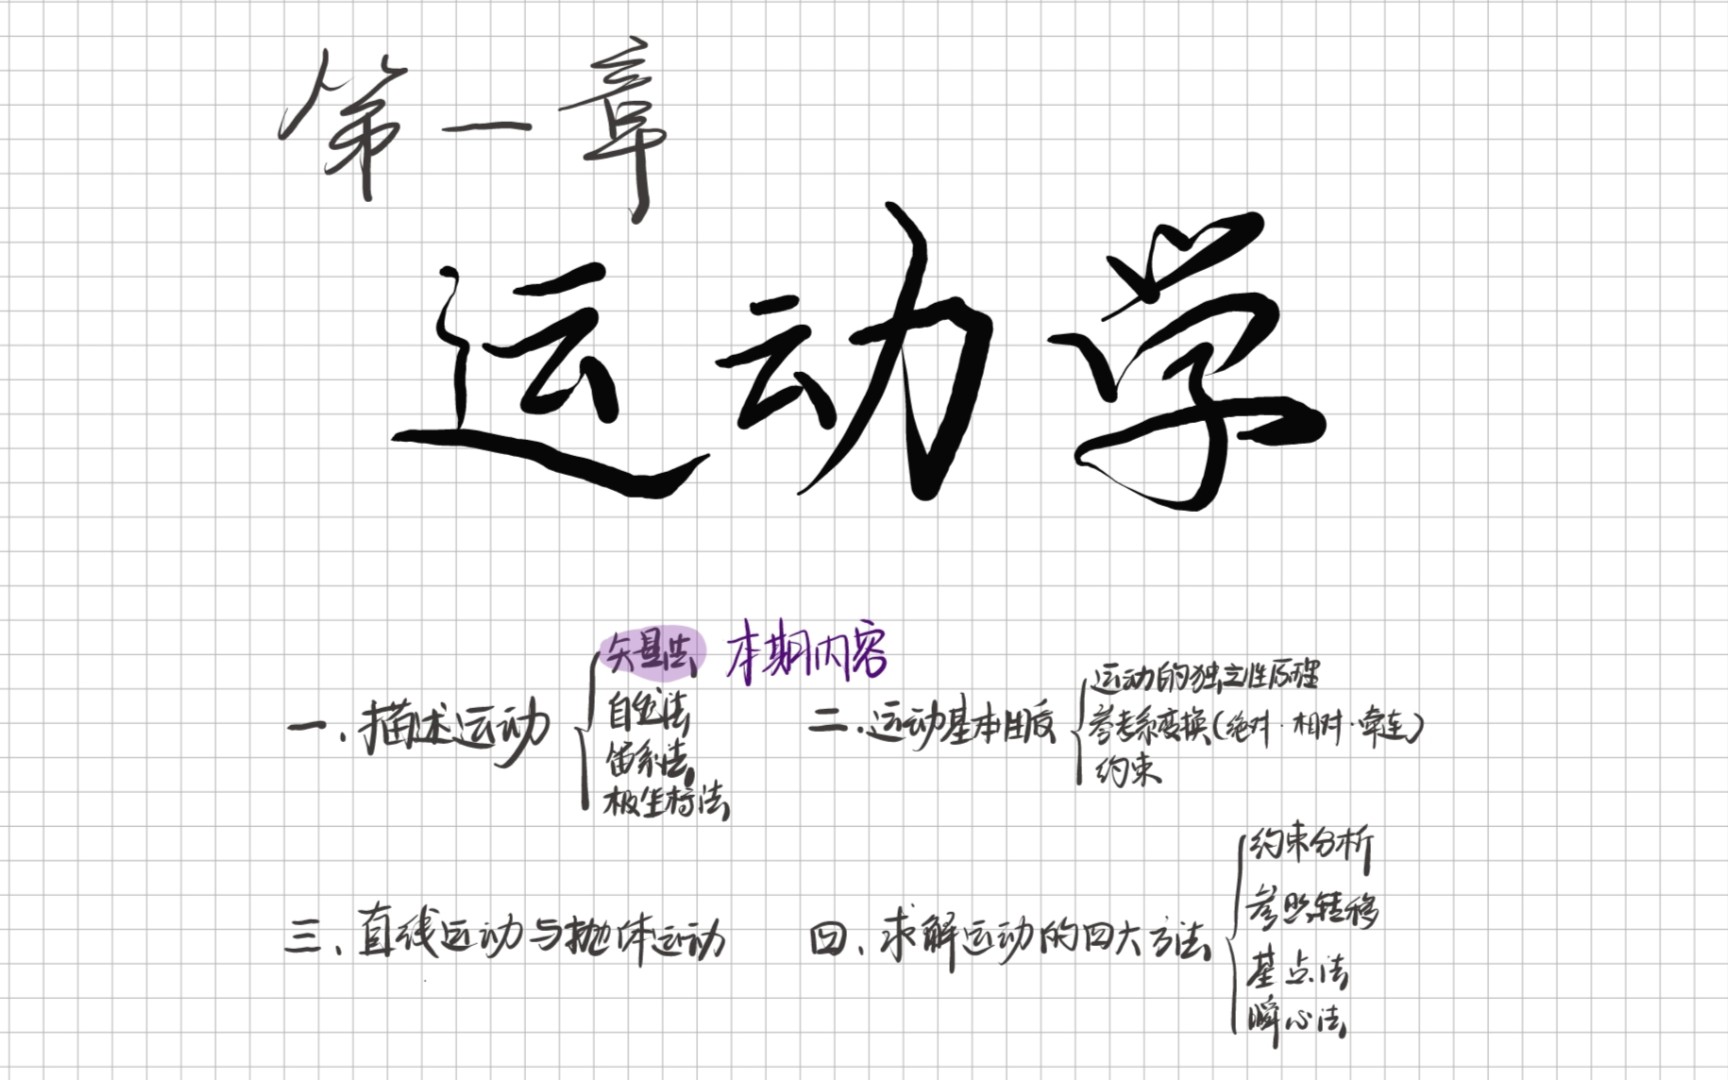 第一章
运动学
一、描述运动
矢量法 本期内容
自然法
直角系法
极坐标法
二、运动基本性质
运动的独立性原理
参考系变换(绝对·相对·牵连)
约束
三、直线运动与抛体运动
四、求解运动的四大方法
约束分析
参照转移
基点法
瞬心法